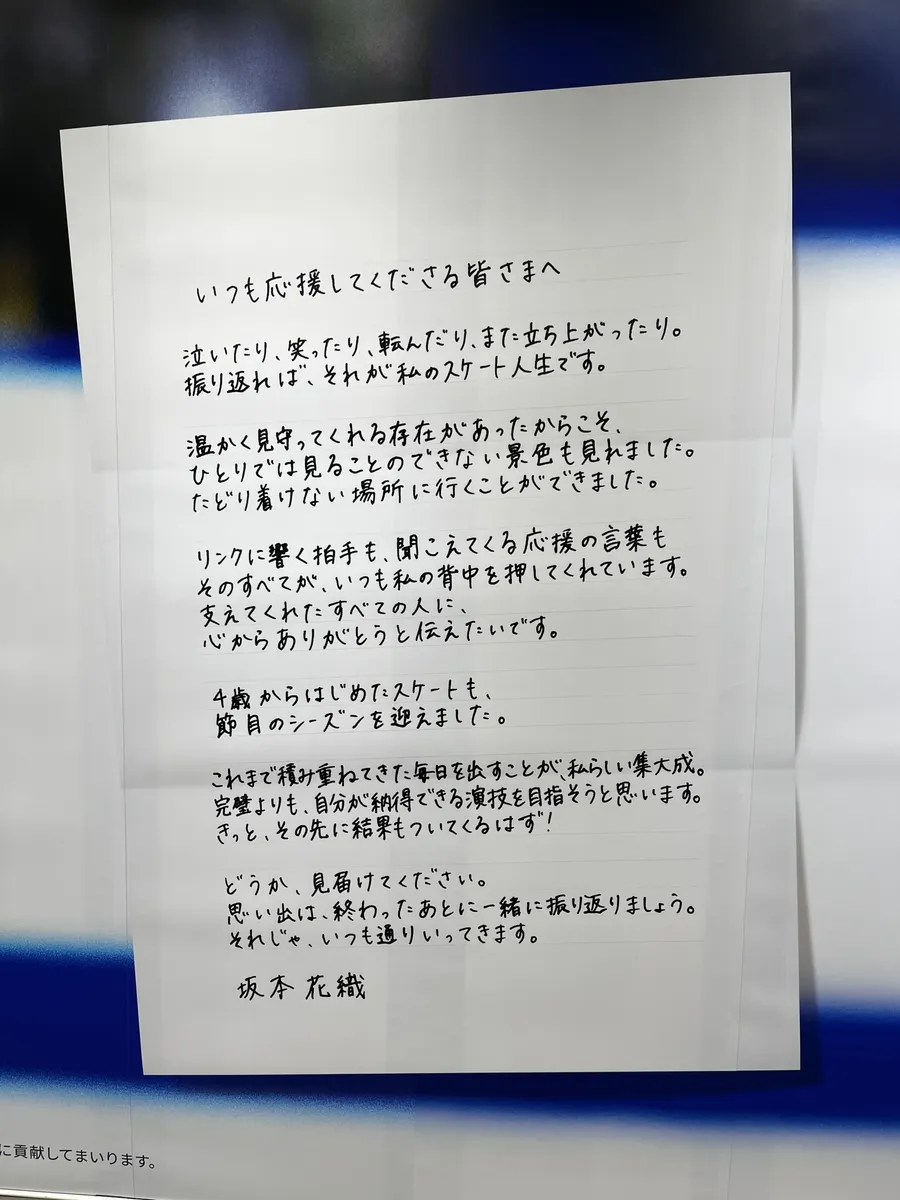 いつも応援してくださる皆さまへ
泣いたり、笑ったり、転んだり、また立ち上がったり。
振り返れば、それが私のスケート人生です。
温かく見守ってくれる存在があったからこそ、
ひとりでは見ることのできない景色も見れました。
たどり着けない場所に行くことができました。
リンクに響く拍手も、聞こえてくる応援の言葉も
そのすべてが、いつも私の背中を押してくれています。
支えてくれたすべての人に、
心からありがとうと伝えたいです。
4歳からはじめたスケートも、
節目のシーズンを迎えました。
これまで積み重ねてきた毎日を出すことが、私らしい集大成。
完璧よりも、自分が納得できる演技を目指そうと思います。
きっと、その先に結果もついてくるはず!
どうか、見届けてください。
思い出は、終わったあとに一緒に振り返りましょう。
それじゃ、いつも通りいってきます。
坂本花織
に貢献してまいります。